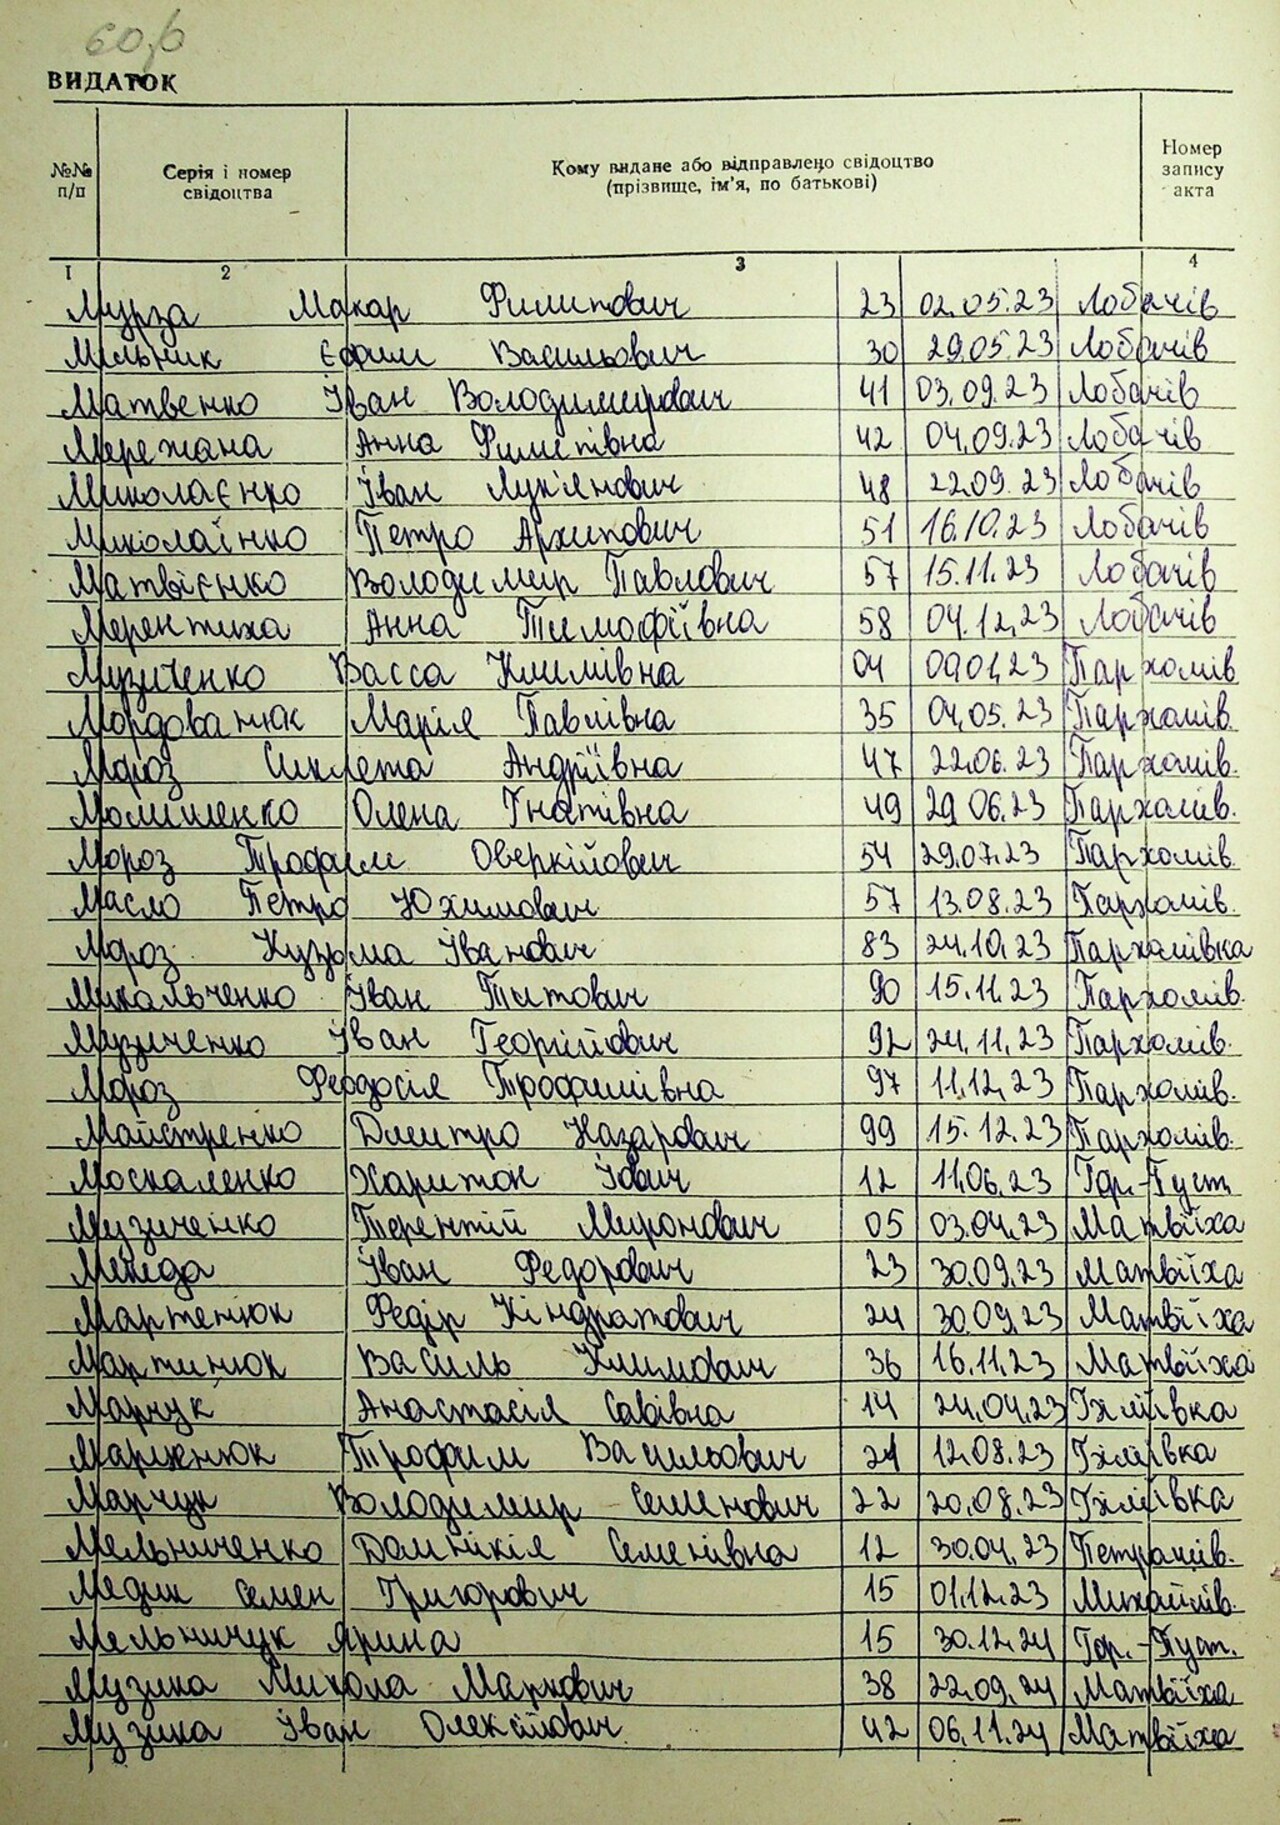 60,6
ВИДАТОК
№№ п/п Серія і номер свідоцтва Кому видане або відправлено свідоцтво (прізвище, ім'я, по батькові) Номер запису акта
1 2 3 4
Мурза Макар Филипович 23 02.05.23 Лобачів
Мельник Єфим Васильович 30 29.05.23 Лобачів
Матвенко Іван Володимирович 41 03.09.23 Лобачів
Мережана Анна Филипівна 42 04.09.23 Лобачів
Миколаєнко Іван Лук'янович 48 22.09.23 Лобачів
Миколаїнко Петро Архипович 51 16.10.23 Лобачів
Матвієнко Володимир Павлович 57 15.11.23 Лобачів
Мерентиха Анна Тимофіївна 58 04.12.23 Лобачів
Музиченко Васса Климівна 04 09.01.23 Пархомів
Мордованюк Марія Павлівна 35 04.05.23 Пархомів.
Мороз Синклета Андріївна 47 22.06.23 Пархомів.
Момишенко Олена Гнатівна 49 29.06.23 Пархомів.
Мороз Трофим Оверкійович 54 29.07.23 Пархомів.
Масло Петро Юхимович 57 13.08.23 Пархомів.
Мороз Кузьма Іванович 83 24.10.23 Пархомівка
Михальченко Іван Титович 90 15.11.23 Пархомів.
Музиченко Іван Георгійович 92 24.11.23 Пархомів.
Мороз Феодосія Трофимівна 97 11.12.23 Пархомів.
Майстренко Дмитро Назарович 99 15.12.23 Пархомів.
Москаленко Харитон Іович 12 11.06.23 Гор.-Пуст.
Музиченко Терентій Миронович 05 03.04.23 Матвіїха
Іван Федорович 23 30.09.23 Матвіїха
Мартенюк Федір Кіндратович 24 30.09.23 Матвіїха
Мартинюк Василь Климович 36 16.11.23 Матвіїха
Марчук Анастасія Савівна 14 24.04.23
Трофим Васильович 21 12.08.23
Марчук Володимир Семенович 22 20.08.23
Мельниченко Домнікія Семенівна 12 30.04.23 Петрашів.
Медик Семен Григорович 15 01.12.23 Михайлів.
Мельничук Ярина 15 30.12.24 Гор.-Пуст.
Музика Микола Маркович 38 22.09.24 Матвіїха
Музика Іван Олексійович 42 06.11.24 Матвіїха